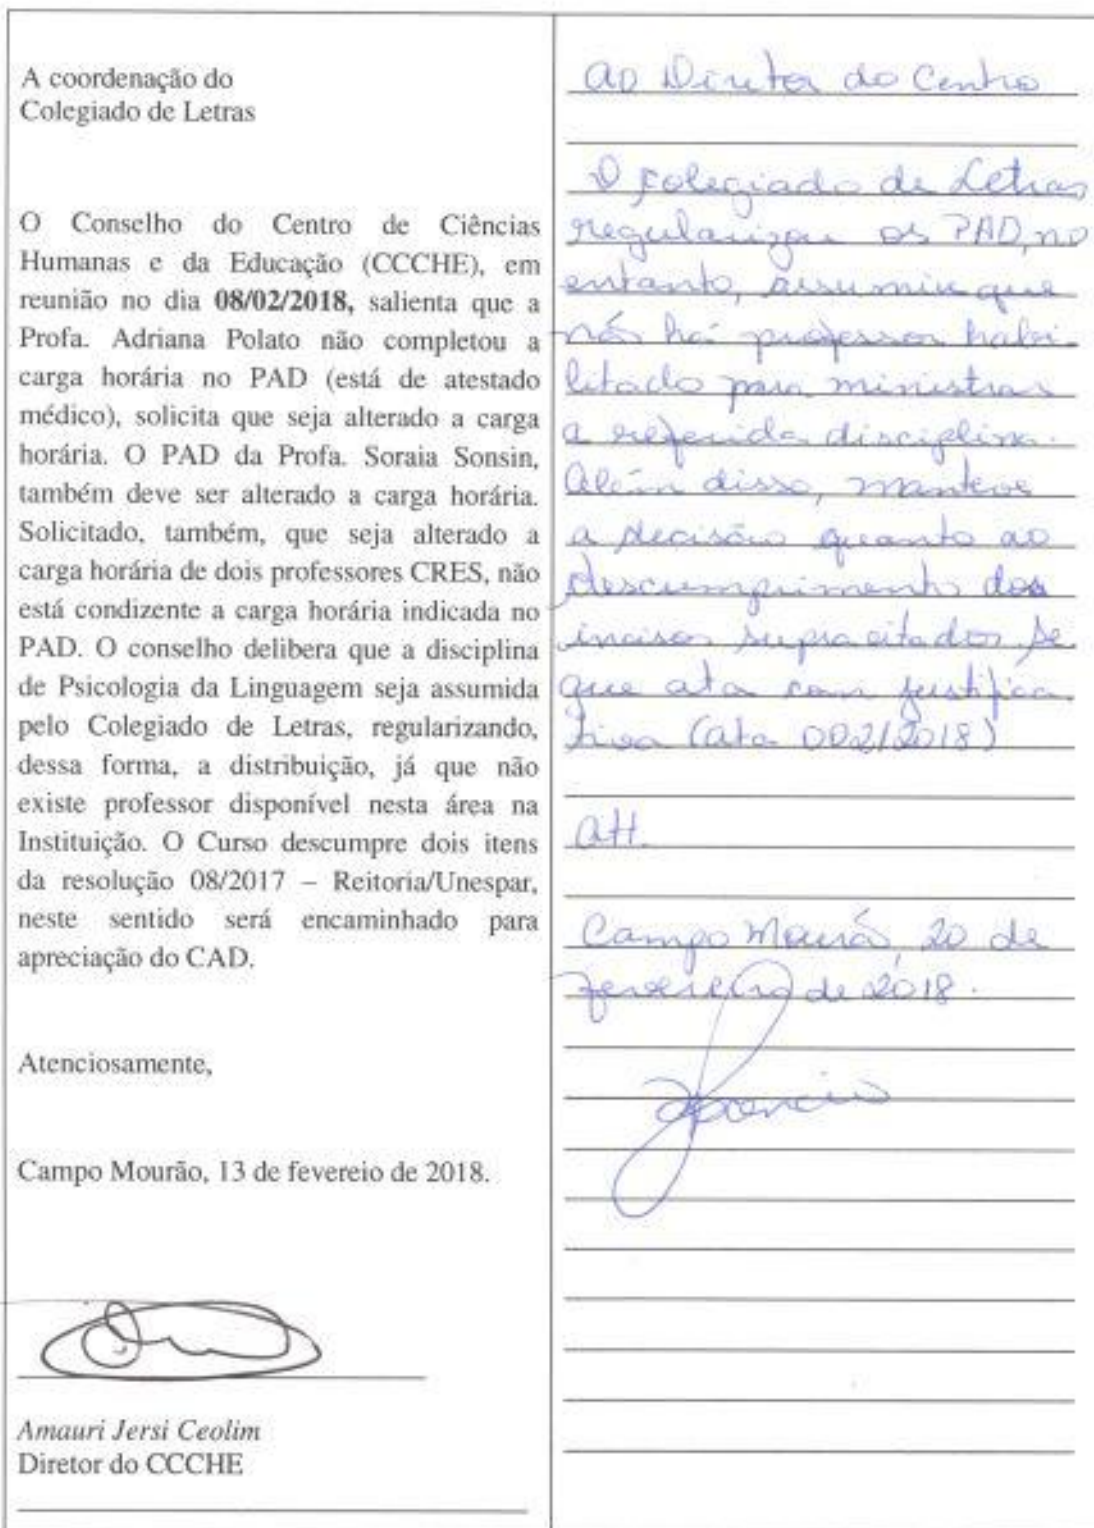 A coordenação do
Colegiado de Letras
O Conselho do Centro de Ciências
Humanas e da Educação (CCCHE), em
reunião no dia 08/02/2018, salienta que a
Profa. Adriana Polato não completou a
carga horária no PAD (está de atestado
médico), solicita que seja alterado a carga
horária. O PAD da Profa. Soraia Sonsin,
também deve ser alterado a carga horária.
Solicitado, também, que seja alterado a
carga horária de dois professores CRES, não
está condizente a carga horária indicada no
PAD. O conselho delibera que a disciplina
de Psicologia da Linguagem seja assumida
pelo Colegiado de Letras, regularizando,
dessa forma, a distribuição, já que não
existe professor disponível nesta área na
Instituição. O Curso descumpre dois itens
da resolução 08/2017 – Reitoria/Unespar,
neste sentido será encaminhado para
apreciação do CAD.
Atenciosamente,
Campo Mourão, 13 de fevereio de 2018.
Amauri Jersi Ceolim
Diretor do CCCHE
Ao Diretor do Centro
O Colegiado de Letras
regularizou os PAD, no
entanto, assumiu que
não há professor habi-
litado para ministrar
a referida disciplina.
Além disso, manteve
a decisão quanto ao
descumprimento dos
incisos supracitados. Se-
gue ata com justifica-
tiva (ata 002/2018)
Att.
Campo Mourão, 20 de
fevereiro de 2018.